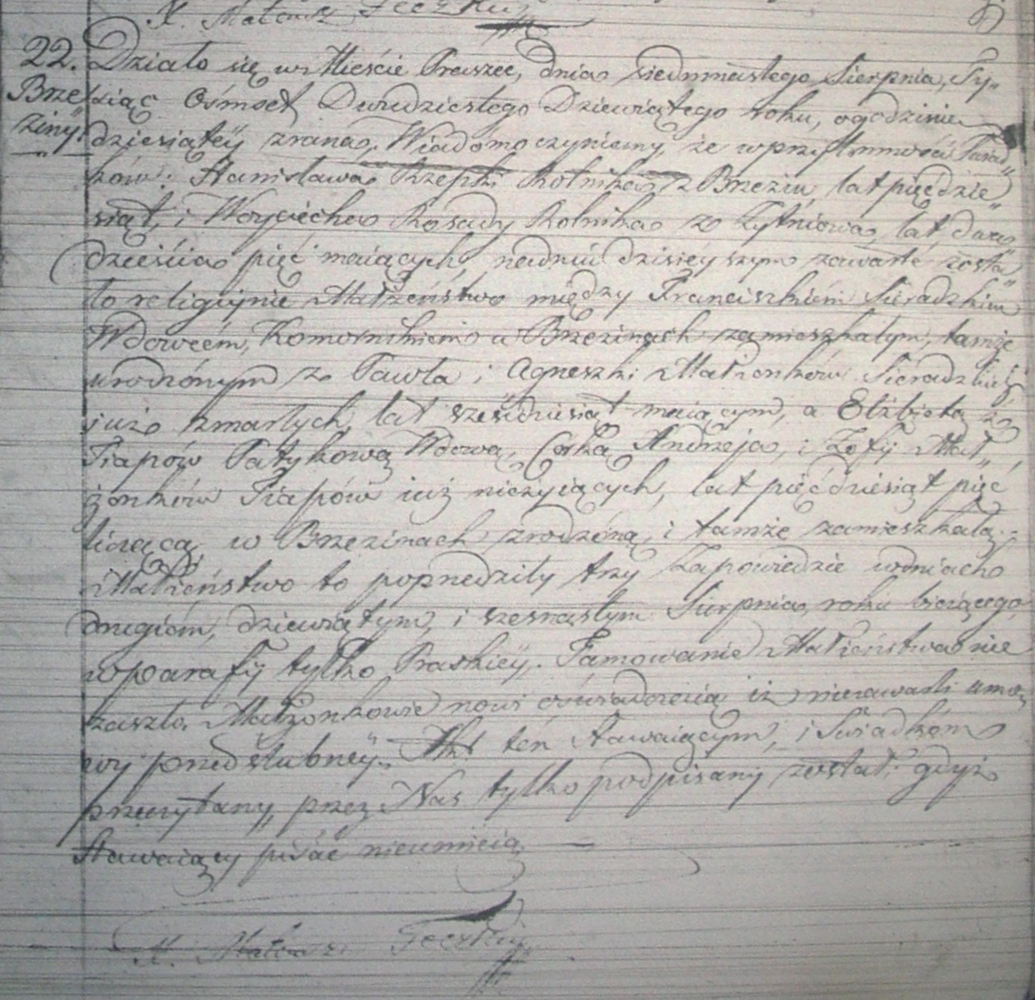 X. Mateusz Teczki
22. Działo się w Mieście Praszce, dnia siedmnastego Sierpnia, Ty„
Brze siąc Ośmset Dwudziestego Dziewiątego roku, o godzinie
ziny. dziesiątéÿ zrana. Wiadomo czyniemy, że w przytomności Świad„
ków: Stanisława Rzepki Rolnika z Brzezin, lat pięćdzie„
siąt, i Woyciecha Rosady Rolnika z Żytniowa, lat dwa„
dzieścia pięć maiących, na dniu dzisieyszym zawarte zosta„
ło religiÿnie Małżeństwo między Franciszkiem Sieradzkim
Wdowcem, Komornikiem w Brzezinach zamieszkałym, tamże
urodzonym z Pawła i Agneszki Małżonków Sieradzkich,
już zmarłych, lat sześdziesiąt maiącym, a Elżbietą z
Fiapów Patykową Wdową, Córką Andrzeja, i Zofij Mał„
żonków Fiapów iuż nieżyiących, lat pięćdziesiąt pięć
liczącą, w Brzezinach zrodzoną, i tamże zamieszkałą.
Małżeństwo to poprzedziły trzy Zapowiedzie w dniach
drugiém, dziewiątym, i szesnastym Sierpnia, roku bieżącego,
w parafij tylko Praskiéÿ. Tamowanie Małżeństwa nie
zaszło. Małżonkowie nowi oświadczaią iż nie zawarli umo„
wy przedślubnéÿ. Akt ten Stawaiącym, i Świadkom
przeczytany, przez Nas tylko podpisany został: gdyż
Stawaiący pisać nieumieią.
X. Mateusz Teczki